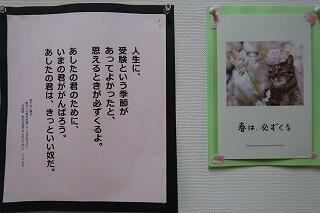 人生に、
受験という季節が
あってよかったと、
思えるときが必ずくるよ。
あしたの君のために、
いまの君ががんばろう。
あしたの君は、きっといい奴だ。
春は、必ずくる